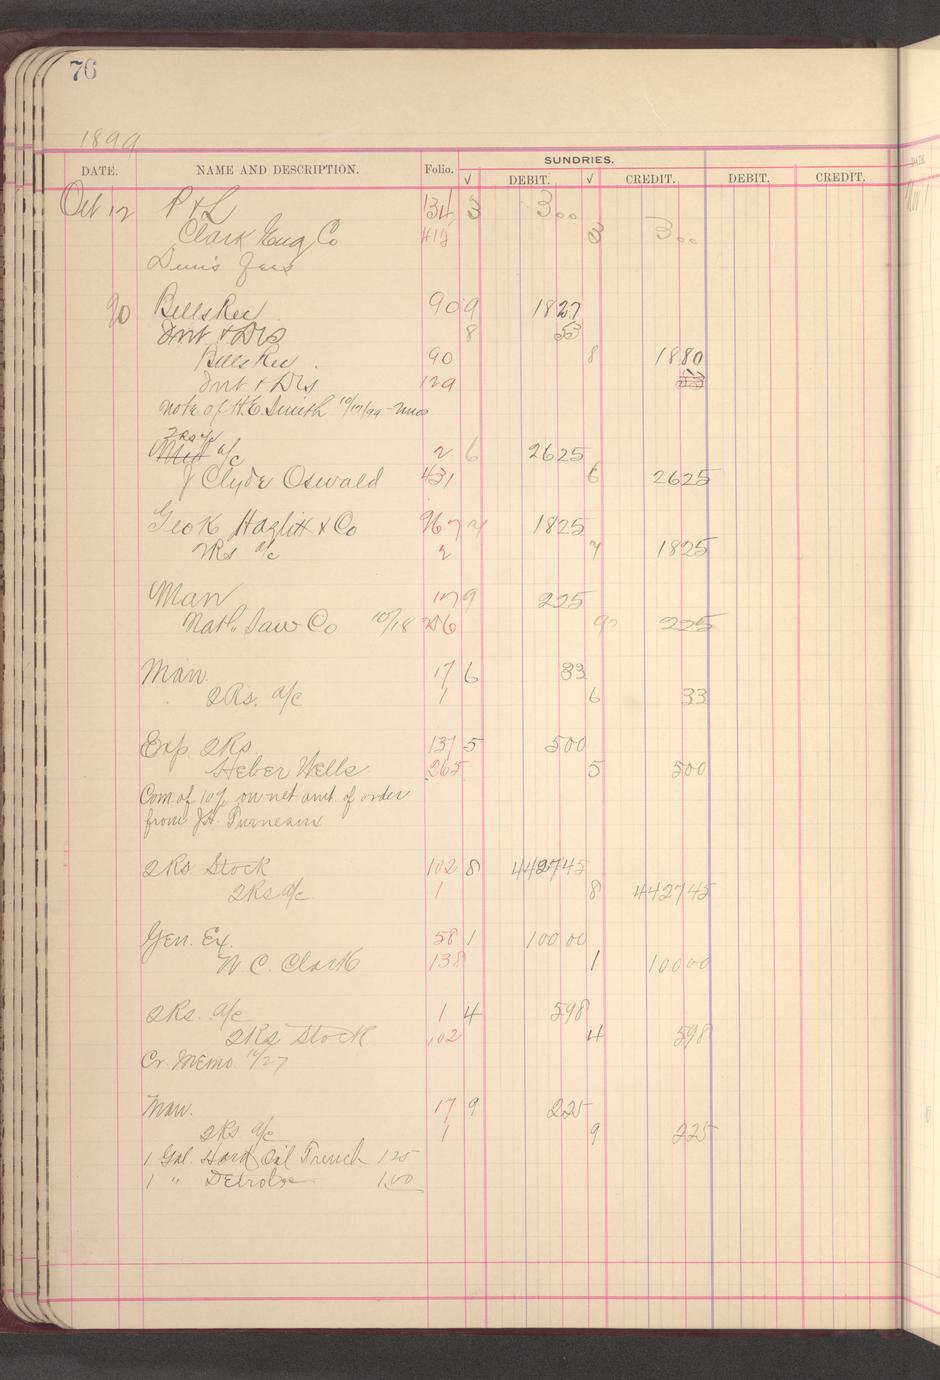 76
1899
SUNDRIES.
DATE. NAME AND DESCRIPTION. Folio. √ DEBIT. √ CREDIT. DEBIT. CREDIT.
Oct 12 P & L 134 3 3 00
Clark Eng Co 412 3 3 00
Dun's fees
Bills Rec 90 9 18 27
Int & Dis 8 53
Bills Rec 90 8 18 80
Int & Dis 129
note of H.E. Smith 10/17/99
2 Rs a/c
a/c 2 6 26 25
J Clyde Oswald 431 6 26 25
Geo K Hazlitt & Co 967 7 18 25
2Rs a/c 2 7 18 25
Man 17 9 2 25
Nat'l Saw Co 10/18 256 9 2 25
Man. 17 6 33
2Rs. a/c 1 6 33
Exp. 2Rs. 137 5 5 00
Heber Wells 265 5 5 00
Com. of 10% on net amt. of order
from J.H.
2Rs. Stock 102 8 4427 45
2Rs a/c 1 8 4427 45
Gen. Ex. 58 1 100 00
W. C. Clark 138 1 100 00
2Rs. a/c 1 4 5 98
2Rs Stock 102 4 5 98
Cr. Memo 10/27
Man. 17 9 2 25
2Rs a/c 1 9 2 25
1 Gal. Hard Oil French 1.25
1 " 1.00